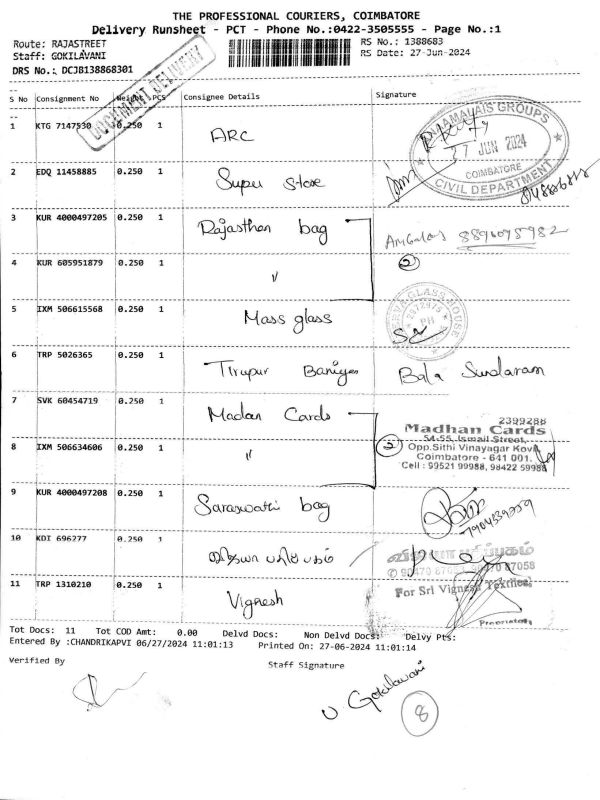 THE PROFESSIONAL COURIERS, COIMBATORE
Delivery Runsheet - PCT - Phone No.:0422-3505555 - Page No.:1
Route: RAJASTREET
RS No.: 1388683
Staff: GOKILAVANI
RS Date: 27-Jun-2024
DRS No.: DCJB138868301
DOCUMENT DELIVERY
S No Consignment No Weight PCS Consignee Details Signature
1 KTG 7147530 0.250 1 ARC
RAJAMALAIS GROUPS
27 JUN 2024
COIMBATORE
CIVIL DEPARTMENT
2 EDQ 11458885 0.250 1 Super Store
3 KUR 4000497205 0.250 1 Rajasthan bag
8896075982
4 KUR 605951879 0.250 1 〃 2
5 IXM 506615568 0.250 1 Mass glass
GLASS HOUSE
6 TRP 5026365 0.250 1 Tirupur Baniyan Bala Sundaram
7 SVK 60454719 0.250 1 Madan Cards
2399288
Madhan Cards
54-55, Ismail Street,
Opp.Sithi Vinayagar Kovil,
Coimbatore - 641 001.
Cell : 99521 99988, 98422 59988
8 IXM 506634606 0.250 1 〃 2
9 KUR 4000497208 0.250 1 Saraswathi bag
10 KDI 696277 0.250 1 விஜயா பதிப்பகம்
விஜயா பதிப்பகம்
11 TRP 1310210 0.250 1 Vignesh
For Sri Vignesh Textiles
Proprietor
Tot Docs: 11 Tot COD Amt: 0.00 Delvd Docs: Non Delvd Docs: Delvy Pts:
Entered By :CHANDRIKAPVI 06/27/2024 11:01:13 Printed On: 27-06-2024 11:01:14
Verified By Staff Signature
U Gokilavani
8